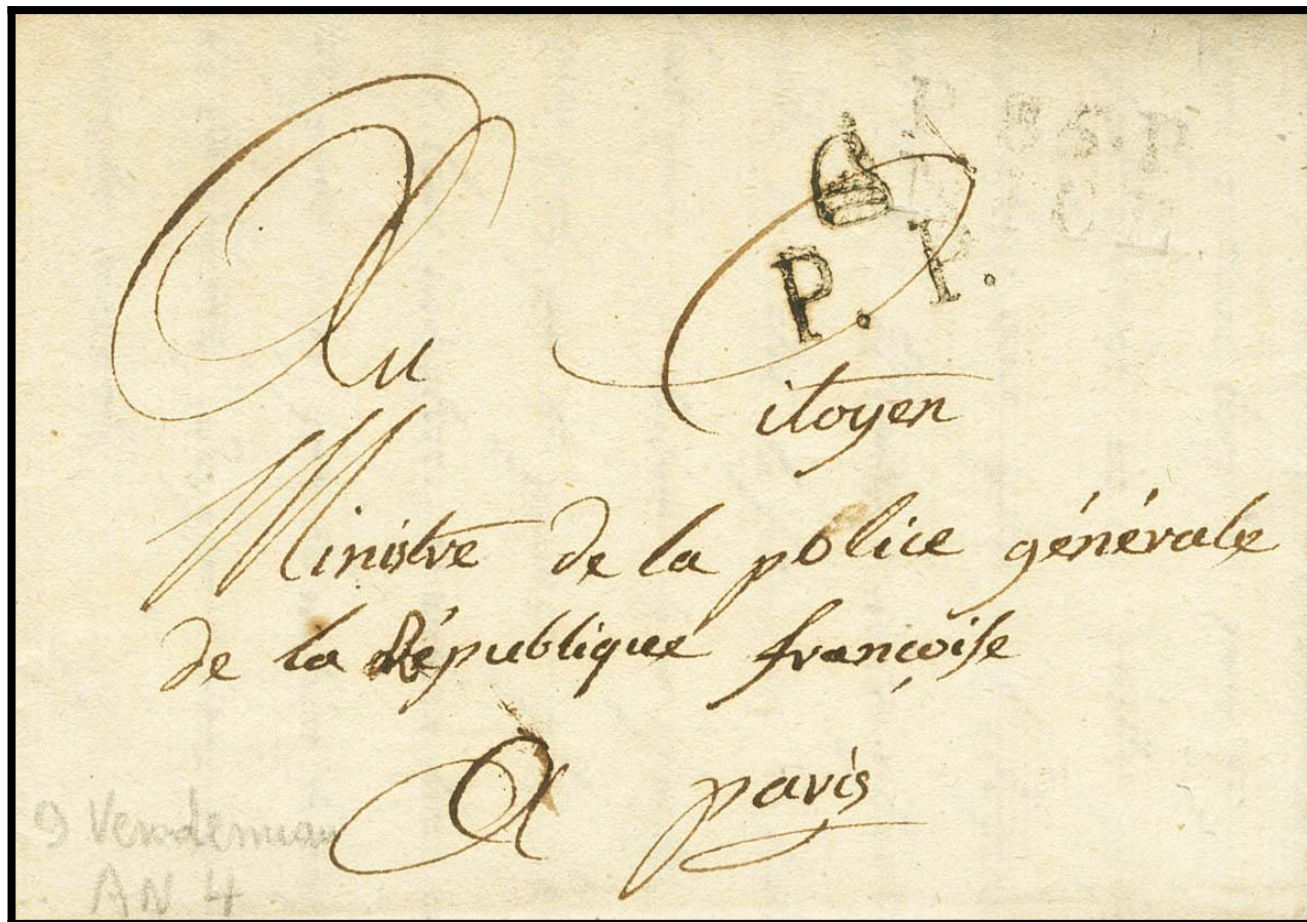 P. P.
Au Citoyen
Ministre de la police générale
de la République françoise
A paris
9 Vendemiau
AN 4